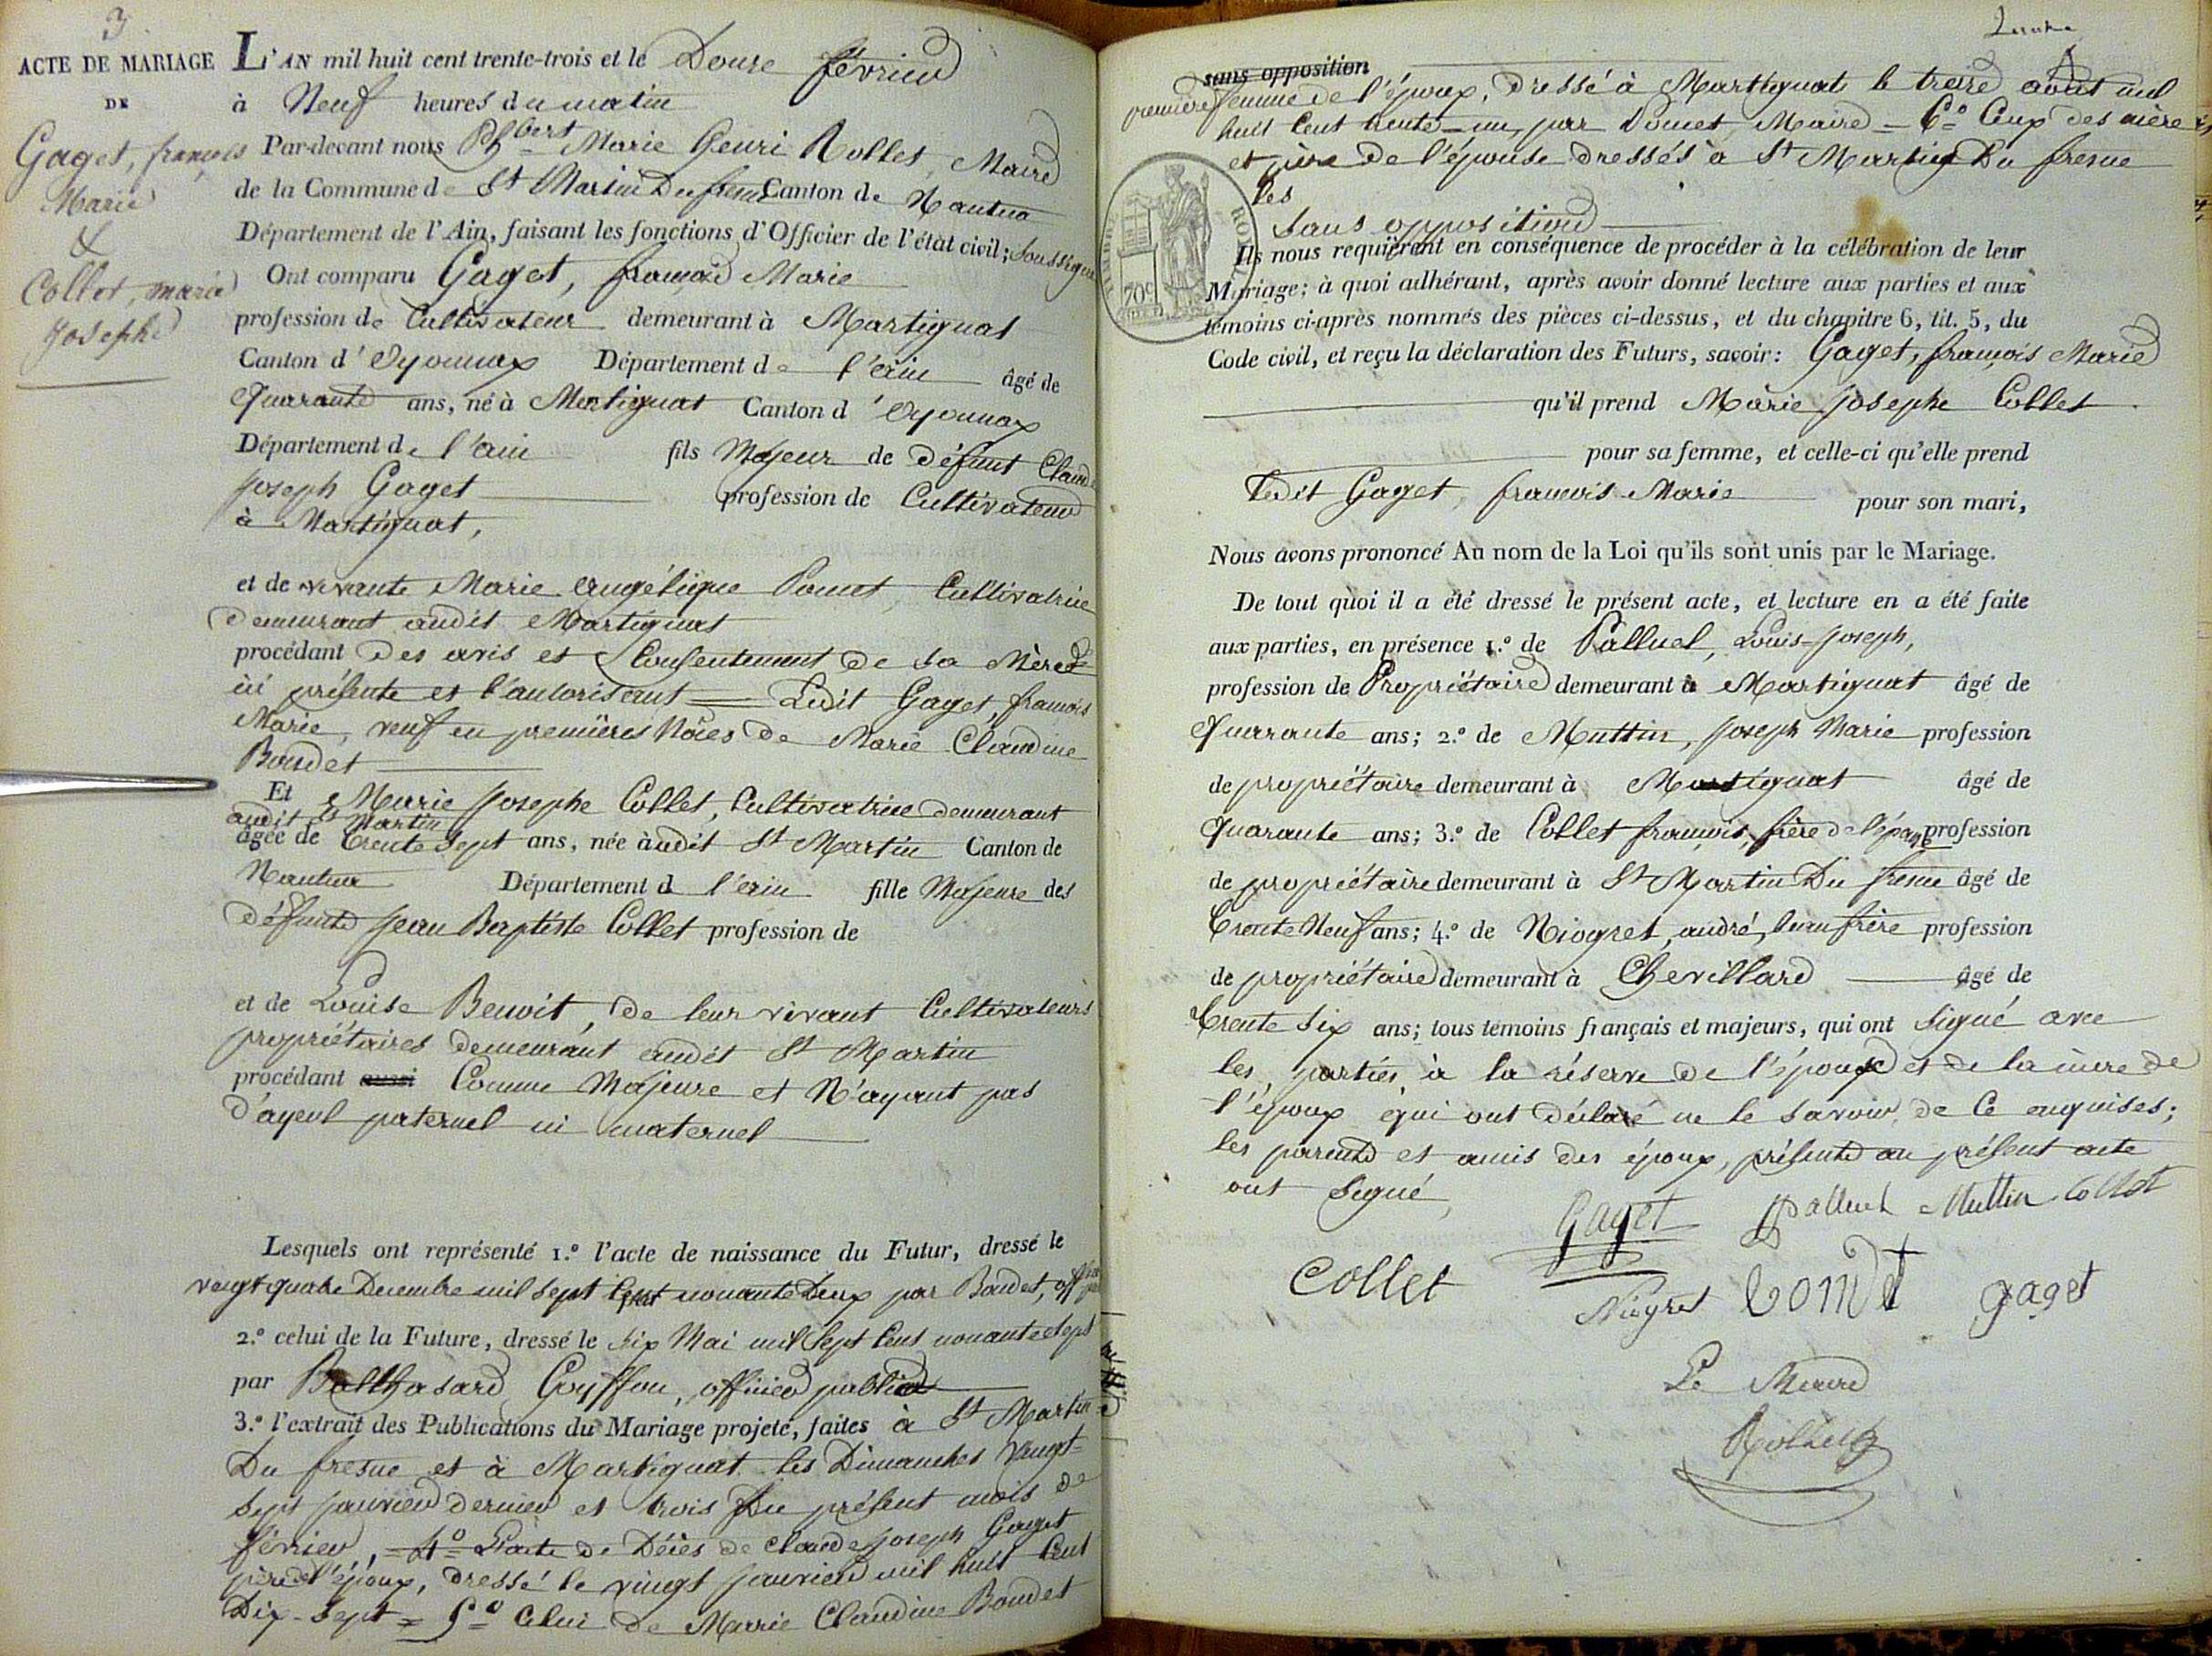 3
ACTE DE MARIAGE
DE
Gaget, françois
Marie
&
Collet, marie
Josephe
L'AN mil huit cent trente-trois et le Douze février
à Neuf heures du matin
Par-devant nous Phbert Marie henri Rollet, Maire
de la Commune de St Martin Du fresne Canton de Nantua
Département de l'Ain, faisant les fonctions d'Officier de l'état civil; Soussigné
Ont comparu Gaget, françois Marie
profession de Cultivateur demeurant à Martignat
Canton d'Oyonnax Département de l'ain âgé de
Quarante ans, né à Martignat Canton d'Oyonnax
Département de l'ain fils Majeur de Défunt Claude
Joseph Gaget profession de Cultivateur
à Martignat,
et de vivante Marie Angélique Ponet, Cultivatrice
Demeurant audit Martignat
procédant Des avis et Consentement de sa Mère
ici présente et l'autorisant = Ledit Gaget, françois
Marie, veuf en premières Nôces de Marie Claudine
Boudet
Et Marie Josephe Collet, Cultivatrice demeurant
audit St Martin
âgée de Trente Sept ans, née audit St Martin Canton de
Nantua Département d l'ain fille Majeure des
défunts Jean Baptiste Collet profession de
et de Louise Benoit, de leur vivant Cultivateurs
propriétaires demeurant audit St Martin
procédant aussi Comme Majeure et N'ayant pas
d'ayeul paternel ni maternel
Lesquels ont représenté 1.º l'acte de naissance du Futur, dressé le
vingt quatre Decembre mil Sept Cent nonante Deux par Boudet, off
2.º celui de la Future, dressé le Six Mai mil Sept Cent nonante Sept
par Balthasard Goyffon, officier public
3.º l'extrait des Publications du Mariage projeté, faites à St Martin
Du fresne et à Martignat les Dimanches Vingt
Sept Janvier dernier et trois Du présent mois de
février, = 4º = L'acte de Décès de Claude Joseph Gaget
père de l'époux, dressé le vingt Janvier mil huit Cent
Dix-Sept = 5º Celui de Marie Claudine Boudet
sans opposition
première femme de l'époux, Dressé à Martignat le treize août mil
huit Cent trente-un, par Ponet, Maire = 6º Ceux des mère
et père de l'épouse dressés à St Martin Du fresne
les
Sans opposition
Ils nous requièrent en conséquence de procéder à la célébration de leur
Mariage; à quoi adhérant, après avoir donné lecture aux parties et aux
témoins ci-après nommés des pièces ci-dessus, et du chapitre 6, tit. 5, du
Code civil, et reçu la déclaration des Futurs, savoir: Gaget, françois Marie
qu'il prend Marie Josephe Collet
pour sa femme, et celle-ci qu'elle prend
Ledit Gaget françois Marie pour son mari,
Nous avons prononcé Au nom de la Loi qu'ils sont unis par le Mariage.
De tout quoi il a été dressé le présent acte, et lecture en a été faite
aux parties, en présence 1.º de Palluel, Louis-Joseph,
profession de Propriétaire demeurant à Martignat âgé de
Quarante ans; 2.º de Muttin, Joseph Marie profession
de propriétaire demeurant à Martignat âgé de
Quarante ans; 3.º de Collet françois, frère de l'épouse profession
de propriétaire demeurant à St Martin Du fresne âgé de
Trente Neuf ans; 4.º de Niogret, andré, beau frère profession
de propriétaire demeurant à Chevillard âgé de
Trente Six ans; tous témoins français et majeurs, qui ont Signé avec
les parties à la réserve de l'épouse et de la mère de
l'époux qui ont déclaré ne le savoir, de Ce enquises;
les parents et amis des époux, présents au présent acte
ont Signé,
Gaget Palluel Muttin Collet
Collet
Niogret gaget
Le Maire
Rollet
70c